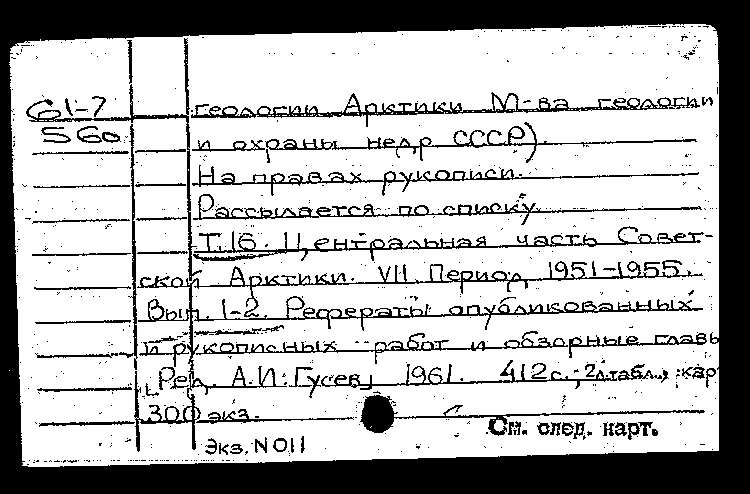 61-7 геологии Арктики М-ва геологии
560 и охраны недр СССР).
На правах рукописи.
Рассылается по списку.
Т.16. Центральная часть Совет-
ской Арктики. VII. Период 1951-1955.
Вып. 1-2. Рефераты опубликованных
и рукописных работ и обзорные главы
[Ред. А.И. Гусев] 1961. 412 с.; 2 л. табл., кар
300 экз.
См. след. карт.
Экз. N 011